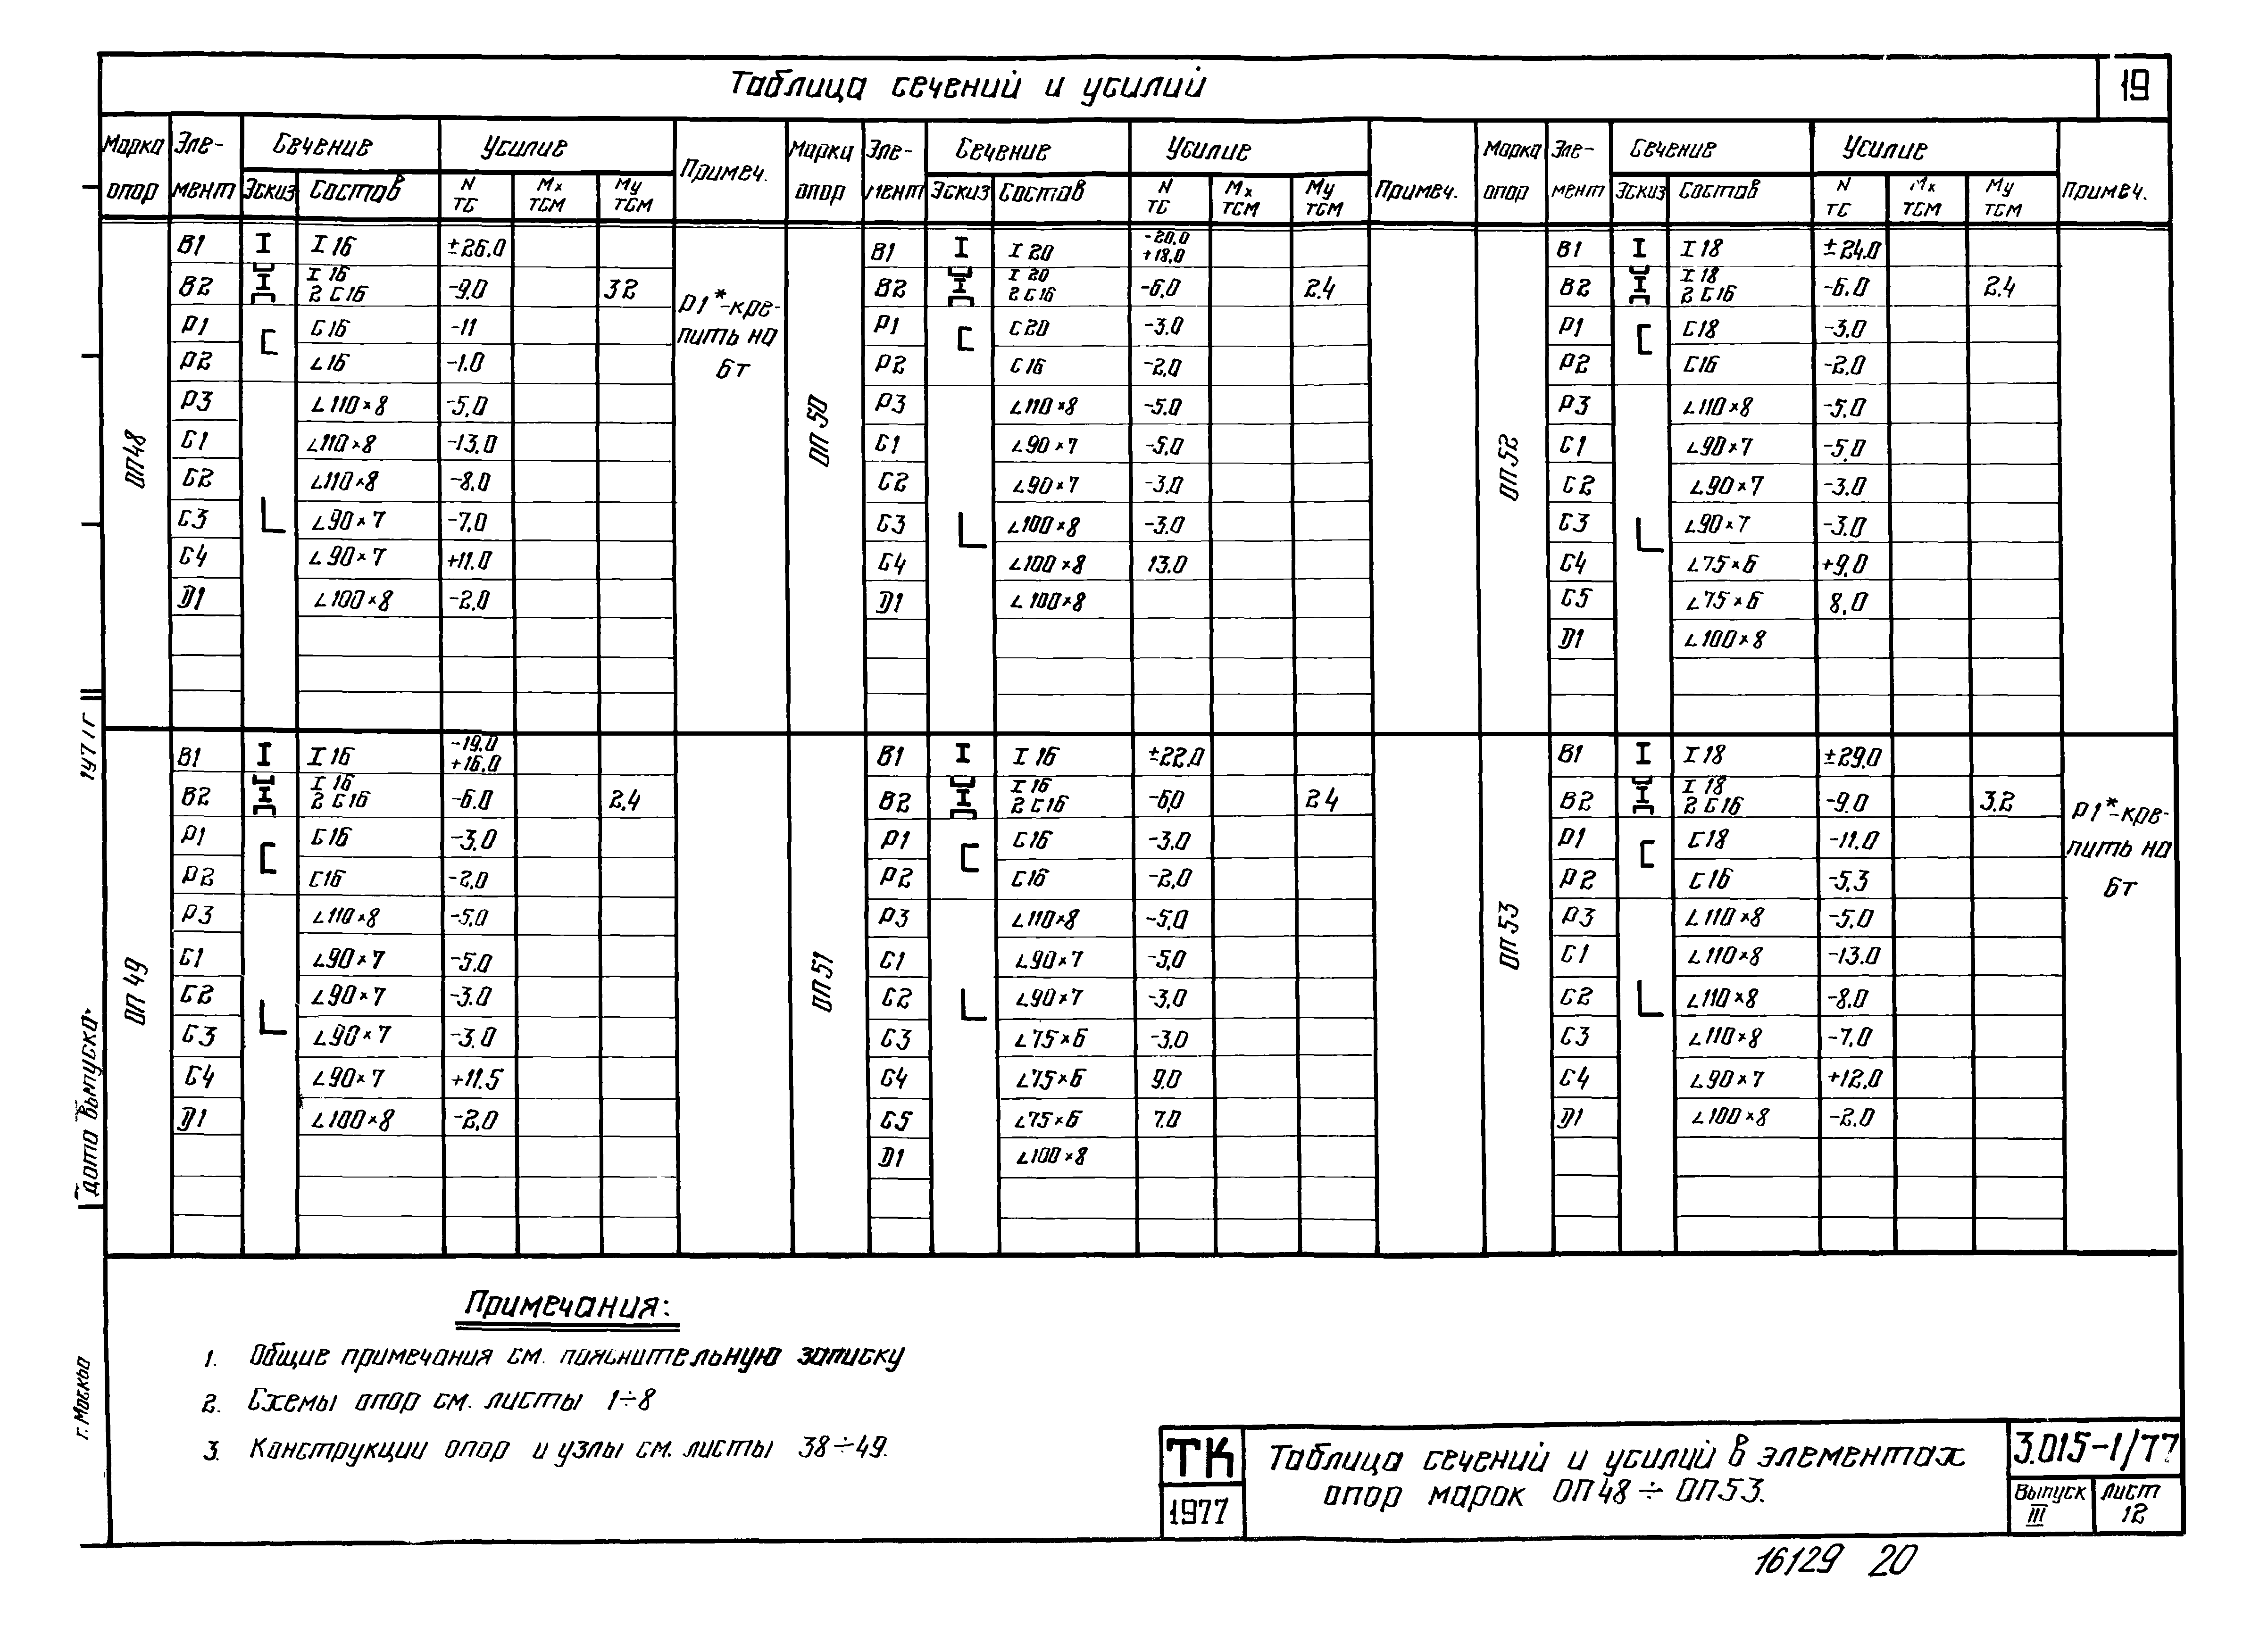 Таблица сечений и усилий
19
Марка опор | Эле-мент | Сечение | Усилие | Примеч. | Марка опор | Эле-мент | Сечение | Усилие | Примеч. | Марка опор | Эле-мент | Сечение | Усилие | Примеч.
Эскиз | Состав | N тс | Mx тсм | My тсм | Эскиз | Состав | N тс | Mx тсм | My тсм | Эскиз | Состав | N тс | Mx тсм | My тсм
ОП48
В1 I 16 ±26.0
В2 I 16 2 С16 -9.0 32
Р1 С16 -11
Р2 ∠16 -1.0
Р3 ∠110×8 -5.0
С1 ∠110×8 -13.0
С2 ∠110×8 -8.0
С3 ∠90×7 -7.0
С4 ∠90×7 +11.0
D1 ∠100×8 -2.0
Р1*-кре-
пить на
6т
ОП 50
В1 I 20 -20.0 +18.0
В2 I 20 2 С16 -6.0 2.4
Р1 С20 -3.0
Р2 С16 -2.0
Р3 ∠110×8 -5.0
С1 ∠90×7 -5.0
С2 ∠90×7 -3.0
С3 ∠100×8 -3.0
С4 ∠100×8 13.0
D1 ∠100×8
ОП 52
В1 I 18 ±24.0
В2 I 18 2 С16 -6.0 2.4
Р1 С18 -3.0
Р2 С16 -2.0
Р3 ∠110×8 -5.0
С1 ∠90×7 -5.0
С2 ∠90×7 -3.0
С3 ∠90×7 -3.0
С4 ∠75×6 +9.0
С5 ∠75×6 8.0
D1 ∠100×8
ОП 49
В1 I 16 -19.0 +16.0
В2 I 16 2 С16 -6.0 2.4
Р1 С16 -3.0
Р2 С16 -2.0
Р3 ∠110×8 -5.0
С1 ∠90×7 -5.0
С2 ∠90×7 -3.0
С3 ∠90×7 -3.0
С4 ∠90×7 +11.5
D1 ∠100×8 -2.0
ОП 51
В1 I 16 ±22.0
В2 I 16 2 С16 -6.0 24
Р1 С16 -3.0
Р2 С16 -2.0
Р3 ∠110×8 -5.0
С1 ∠90×7 -5.0
С2 ∠90×7 -3.0
С3 ∠75×6 -3.0
С4 ∠75×6 9.0
С5 ∠75×6 7.0
D1 ∠100×8
ОП 53
В1 I 18 ±29.0
В2 I 18 2 С16 -9.0 3.2
Р1 С18 -11.0
Р2 С16 -5.3
Р3 ∠110×8 -5.0
С1 ∠110×8 -13.0
С2 ∠110×8 -8.0
С3 ∠110×8 -7.0
С4 ∠90×7 +12.0
D1 ∠100×8 -2.0
Р1*-кре-
пить на
6т
Дата выпуска
г. Москва
Примечания:
1. Общие примечания см. пояснительную записку
2. Схемы опор см. листы 1÷8
3. Конструкции опор и узлы см. листы 38÷49.
ТК
1977
Таблица сечений и усилий в элементах
опор марок ОП48÷ОП53.
3.015-1/77
Выпуск III
лист 12
16129 20